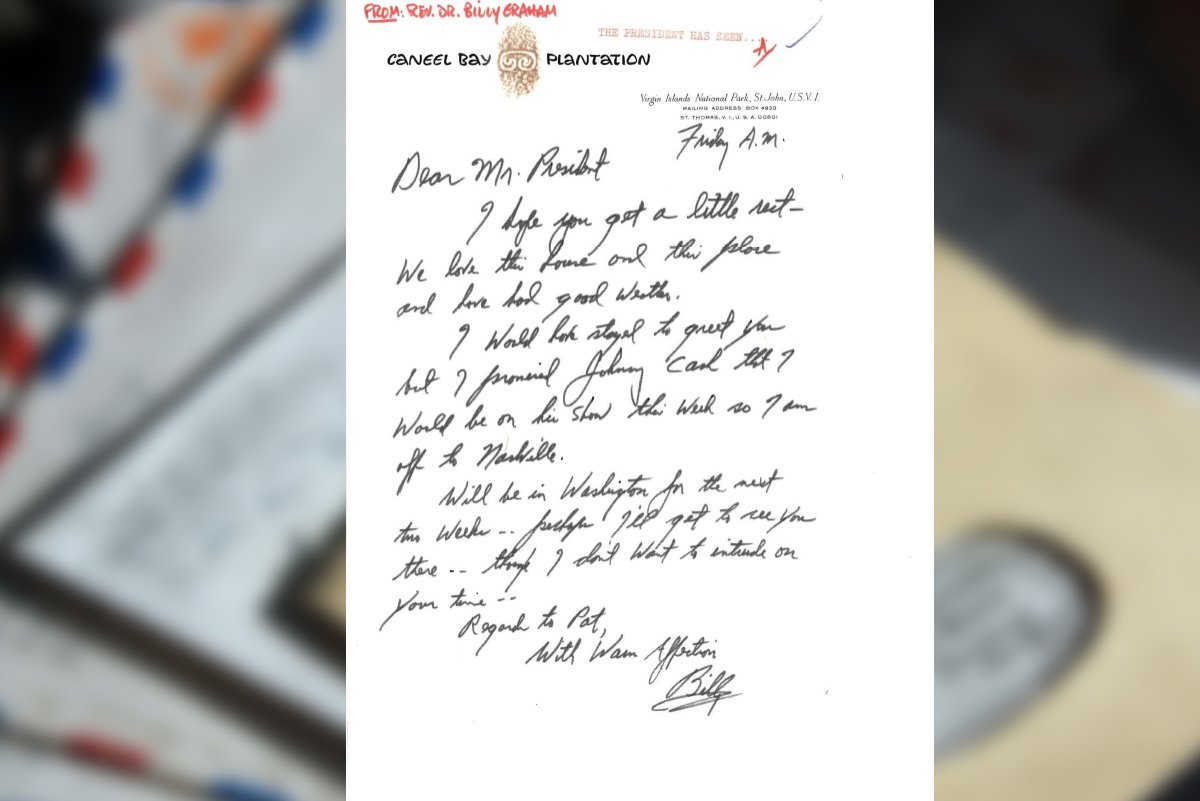 FROM: REV. DR. BILLY GRAHAM
THE PRESIDENT HAS SEEN...
CANEEL BAY PLANTATION
Virgin Islands National Park, St. John, U.S.V.I.
MAILING ADDRESS: BOX 4930
ST. THOMAS, V. I., U. S. A. 00801
Friday A.M.
Dear Mr. President
I hope you get a little rest-
We love this house and this place
and have had good weather.
I would have stayed to greet you
but I promised Johnny Cash that I
would be on his show this week so I am
off to Nashville.
Will be in Washington for the next
two weeks -- perhaps I'll get to see you
there -- though I don't want to intrude on
your time --
Regards to Pat,
With Warm Affection
Billy